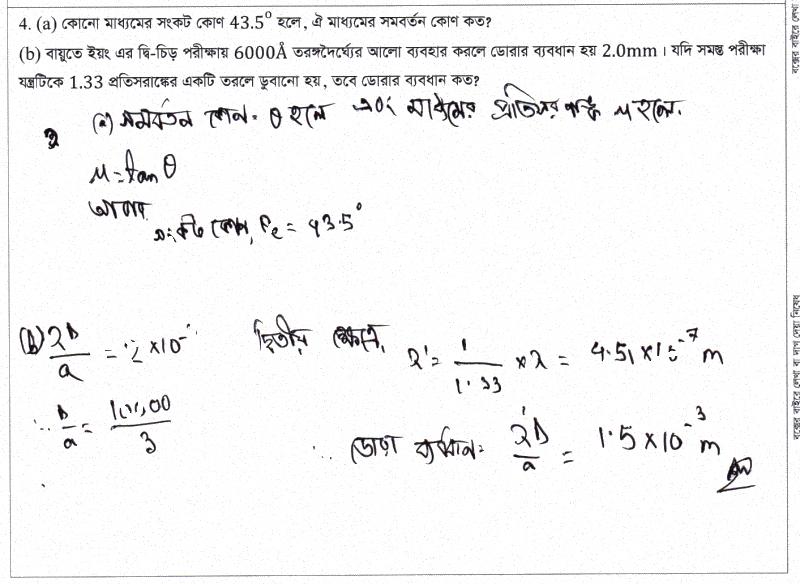 4. (a) কোনো মাধ্যমের সংকট কোণ 43.5° হলে, ঐ মাধ্যমের সমবর্তন কোণ কত?
(b) বায়ুতে ইয়ং এর দ্বি-চিড় পরীক্ষায় 6000Å তরঙ্গদৈর্ঘ্যের আলো ব্যবহার করলে ডোরার ব্যবধান হয় 2.0mm । যদি সমস্ত পরীক্ষা
যন্ত্রটিকে 1.33 প্রতিসরাঙ্কের একটি তরলে ডুবানো হয়, তবে ডোরার ব্যবধান কত?
(a) সমবর্তন কোন = θ হলে এবং মাধ্যমের প্রতিসরাঙ্ক μ হলে,
μ = tan θ
আবার
সংকট কোণ, = 43.5°
(b) λD/a = 2 ×10⁻
দ্বিতীয় ক্ষেত্রে, λ' = 1/1.33 × λ = 4.51 × 10⁻⁷ m
∴ D/a = 10000/3
∴ ডোরা ব্যবধান = λ'D/a = 1.5 × 10⁻³ m
বক্সের বাইরে লেখা বা দাগ দেয়া নিষেধ